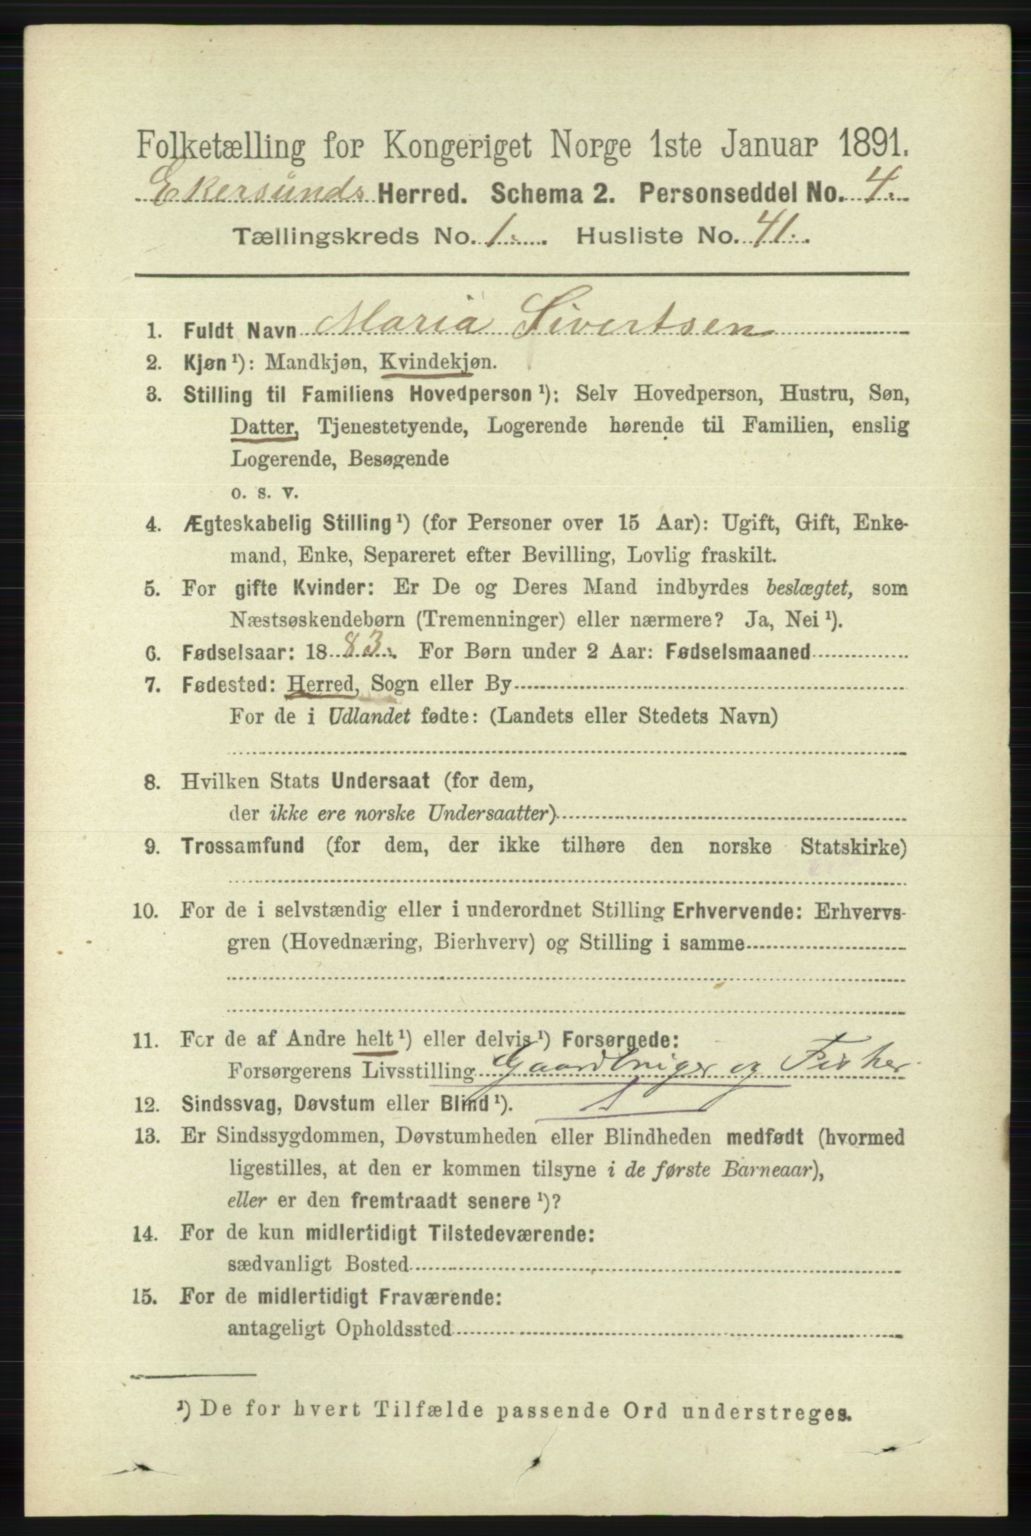 Folketælling for Kongeriget Norge 1ste Januar 1891.
Ekersunds Herred. Schema 2. Personseddel No. 4.
Tællingskreds No. 1. Husliste No. 41.
1. Fuldt Navn Maria Sivertsen
2. Kjøn ¹): Mandkjøn, Kvindekjøn.
3. Stilling til Familiens Hovedperson ¹): Selv Hovedperson, Hustru, Søn,
Datter, Tjenestetyende, Logerende hørende til Familien, enslig
Logerende, Besøgende
o. s. v.
4. Ægteskabelig Stilling ¹) (for Personer over 15 Aar): Ugift, Gift, Enke-
mand, Enke, Separeret efter Bevilling, Lovlig fraskilt.
5. For gifte Kvinder: Er De og Deres Mand indbyrdes beslægtet, som
Næstsøskendebørn (Tremenninger) eller nærmere? Ja, Nei ¹).
6. Fødselsaar: 1883. For Børn under 2 Aar: Fødselsmaaned
7. Fødested: Herred, Sogn eller By
For de i Udlandet fødte: (Landets eller Stedets Navn)
8. Hvilken Stats Undersaat (for dem,
der ikke ere norske Undersaatter)
9. Trossamfund (for dem, der ikke tilhøre den norske Statskirke)
10. For de i selvstændig eller i underordnet Stilling Erhvervende: Erhvervs-
gren (Hovednæring, Bierhverv) og Stilling i samme
11. For de af Andre helt ¹) eller delvis ¹) Forsørgede:
Forsørgerens Livsstilling Gaardbruger og Fisker
12. Sindssvag, Døvstum eller Blind ¹).
13. Er Sindssygdommen, Døvstumheden eller Blindheden medfødt (hvormed
ligestilles, at den er kommen tilsyne i de første Barneaar),
eller er den fremtraadt senere ¹)?
14. For de kun midlertidigt Tilstedeværende:
sædvanligt Bosted
15. For de midlertidigt Fraværende:
antageligt Opholdssted
¹) De for hvert Tilfælde passende Ord understreges.